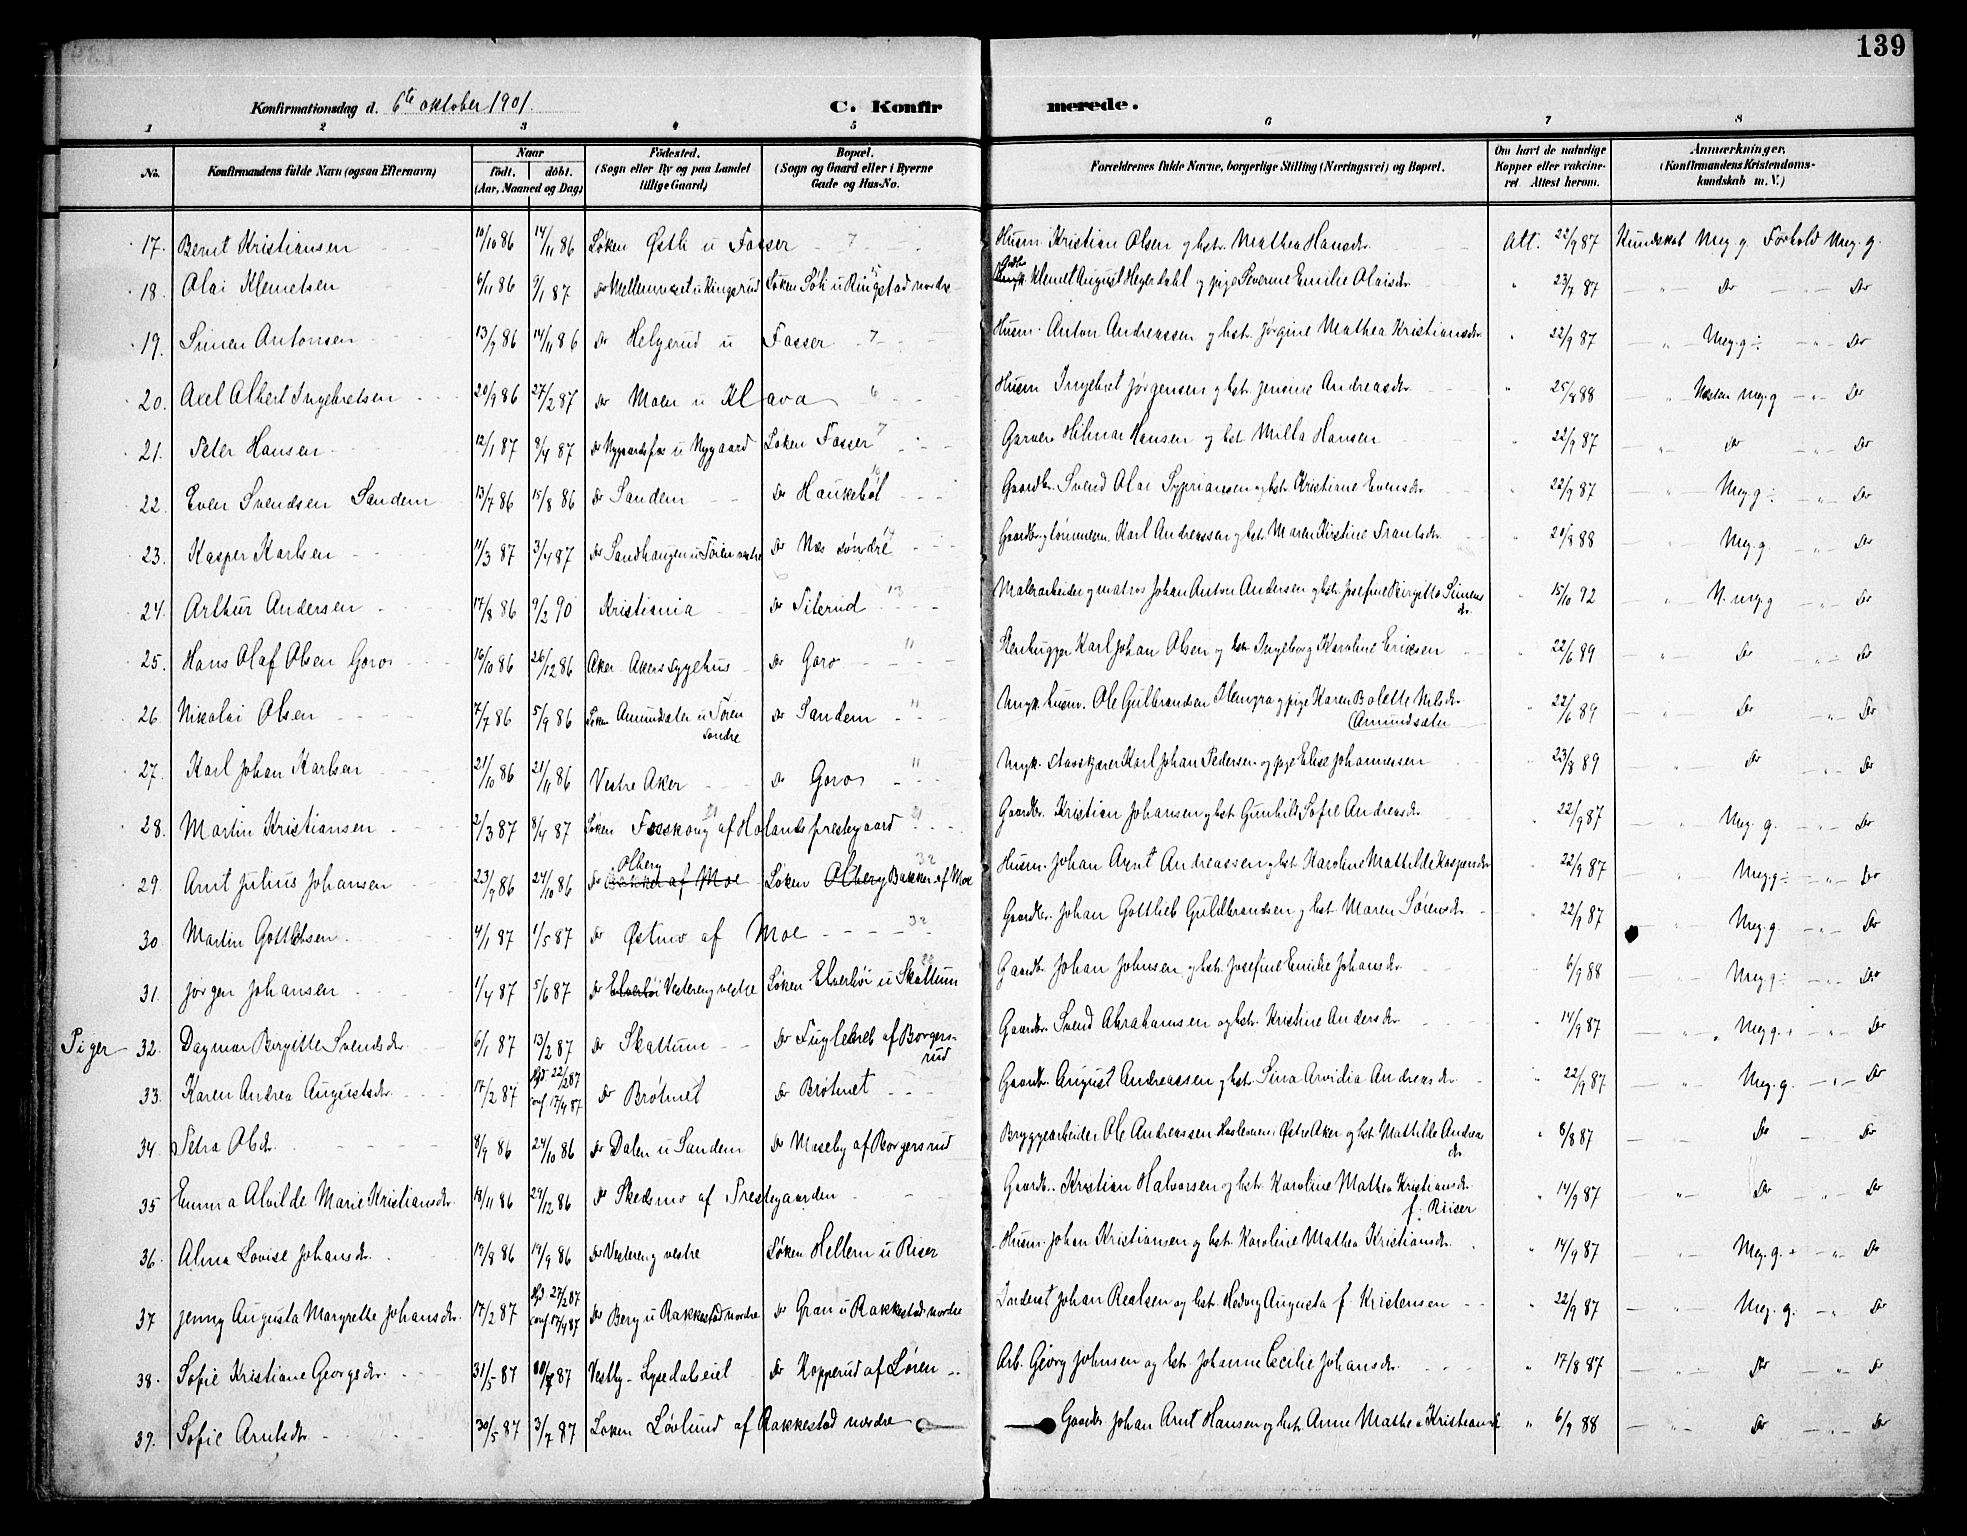 139
Konfirmationsdag d. 6te oktober 1901. C. Konfirmerede.
1 2 3 4 5 6 7 8
No. Konfirmandens fulde Navn (ogsaa Efternavn) Naar født. døbt. (Aar, Maaned og Dag) Fødested. (Sogn eller By og paa Landet tillige Gaard) Bopæl. (Sogn og Gaard eller i Byerne Gade og Hus-No. Forældrenes fulde Navne, borgerlige Stilling (Næringsvei) og Bopæl. Om havt de naturlige Kopper eller vakcineret Attest herom. Anmærkninger, (Konfirmandens Kristendomskundskab m. V.)
17. Bernt Kristiansen 10/10 86 14/11 86 Løken Østli u Fosser 7 Husm. Kristian Olsen og hst. Mathea Hansdr. Att. 22/9 87 Kundskab Meg. g. Forhold Meg. g.
18. Olai Klemetsen 6/11 86 9/1 87 Do u Kingsrud Løken u Ringstad nordre Klemet August Hegerdahl og pige Severine Emilie Olaisdr. " 23/9 87 Do Do
19. Simen Antonsen 13/9 86 14/11 86 Do Helgerud u Fosser 7 Husm. Anton Andreassen og hst. Jørgine Mathea Kristiansdr. " 22/9 87 Meg. g ÷ Do
20. Axel Albert Ingebretsen 20/9 86 27/2 87 Do Moen u Klava 6 Husm Ingebret Jørgensen og hst. Jensine Andreasdr. " 25/8 88 Næsten meg. g Do
21. Peter Hansen 12/1 87 9/4 87 Do u Nygaard Løken Fosser 7 Garver Hilmar Hansen og hst. Milla Hansen " 22/9 87 Do Do
22. Even Svendsen Sandem 13/7 86 15/8 86 Do Sandem Do Haukebøl 10 Gaardbr. Svend Olai Sypriansen og hst. Kristine Evensdr. " 22/9 87 Meg. g ÷ Do
23. Kasper Karlsen 11/3 87 3/4 87 Do Sandhaugen u Tøien vestre Do Næs søndre Gaardbr. og tømmerm. Karl Andreassen og hst. Maren Kristine Frantsdr. " 20/8 88 Meg. g Do
24. Arthur Andersen 17/8 86 9/2 90 Kristiania Do Titerud 13 Malerarbeider og matros Johan Anton Andersen og hst. Josefine Birgitte Simensdr. " 15/10 92 N. meg. g Do
25. Hans Olaf Olsen Goro 16/10 86 26/12 86 Aker Akers sygehus Do Goro 11 Stenhugger Karl Johan Olsen og hst. Ingeborg Karoline Eriksen " 22/6 89 Do Do
26 Nikolai Olsen 7/7 86 5/9 86 Løken Amundsæter u Tøien søndre Do Sandem 11 Ungk. husm. Ole Gulbrandsen Hemgra og pige Karen Bolette Nilsdr. (Amundsæter " 22/6 89 Do Do
27. Karl Johan Karlsen 21/10 86 21/11 86 Vestre Aker Do Goro 11 Ungk. Karl Johan Pedersen og pige Elise Johannessen " 23/8 89 Do Do
28. Martin Kristiansen 2/3 87 8/4 87 Løken Fosskoug af Hølands prestegaard 21 Gaardbr. Kristian Johansen og hst. Gunhild Sofie Andreasdr. 22/9 87 Meg. g. Do
29. Arnt Julius Johansen 23/9 86 24/10 86 Do Olberg af Moe Løken Olberg Bakken af Moe 32 Husm. Johan Arnt Andreassen og hst. Karoline Mathilde Kaspersdr. " 22/9 87 Meg. g ÷ Do
30 Martin Gottlibsen 4/1 87 1/5 87 Do Østmo af Moe 32 Gaardbr. Johan Gottlieb Guldbrandsen og hst. Maren Sørensdr. " 22/9 87 Meg. g. Do
31. Jørgen Johansen 1/4 87 5/6 87 Do Elverhøi Vestereng vestre Løken Elverhøi u Skattum Gaardbr. Johan Johnsen og hst. Josefine Emilie Johansdr. " 6/9 88 Meg. g ÷ Do
Piger 32. Dagmar Birgitte Svendsdr. 6/1 87 13/2 87 Do Skattum Do Fugleneb af Borgersrud Gaardbr. Svend Abrahamsen og hst. Kristine Andersdr. " 14/9 87 Meg. g. + Do
33. Karen Andrea Augustsdr. 17/2 87 22/2 87 conf 17/4 87 Do Brøtnet Do Brøtnet Gaardbr. August Andreassen og hst. Lina Arvidia Andreasdr. " 22/9 87 Meg. g. Do
34. Petra Olsdr. 8/9 86 24/10 86 Do Dalen u Sandem Do Maseby af Borgersrud Bryggearbeider Ole Andreassen i Østre Aker og hst. Mathilde Andreasdr. " 8/8 87 Do Do
35 Emma Alvilde Marie Kristiansdr 18/11 86 29/12 86 Do Skedsmo af Prestegaarden Gaardbr. Kristian Halvorsen og hst. Karoline Mathea Kristiansdr. f. Riiser " 14/9 87 Do Do
36. Alma Lovise Johansdr. 19/8 86 19/9 86 Do Vestereng vestre Løken Hellern u Riser Husm. Johan Kristiansen og hst. Karoline Mathea Kristiansdr. " 14/9 87 Meg. g. + Do
37 Jenny Augusta Margrethe Johansdr. 17/2 87 27/2 87 conf 17/4 87 Do Berg u Rakkestad nordre Do Gran u Rakkestad nordre Inderst Johan Realsen og hst. Hedvig Augusta f. Kristensen " 22/9 87 Meg. g. Do
38. Sofie Kristiane Georgsdr. 31/5 87 10/7 87 Vestby - Do Kopperud af Løren Arb. Georg Johnsen og hst. Johanne Cecilie Johansdr. " 17/8 87 Do Do
39. Sofie Arntsdr. 30/5 87 3/7 87 Løken Løvlund af Rakkestad nordre Gaardbr Johan Arnt Hansen og hst. Anne Mathea Kristiansd " 6/9 88 Do Do